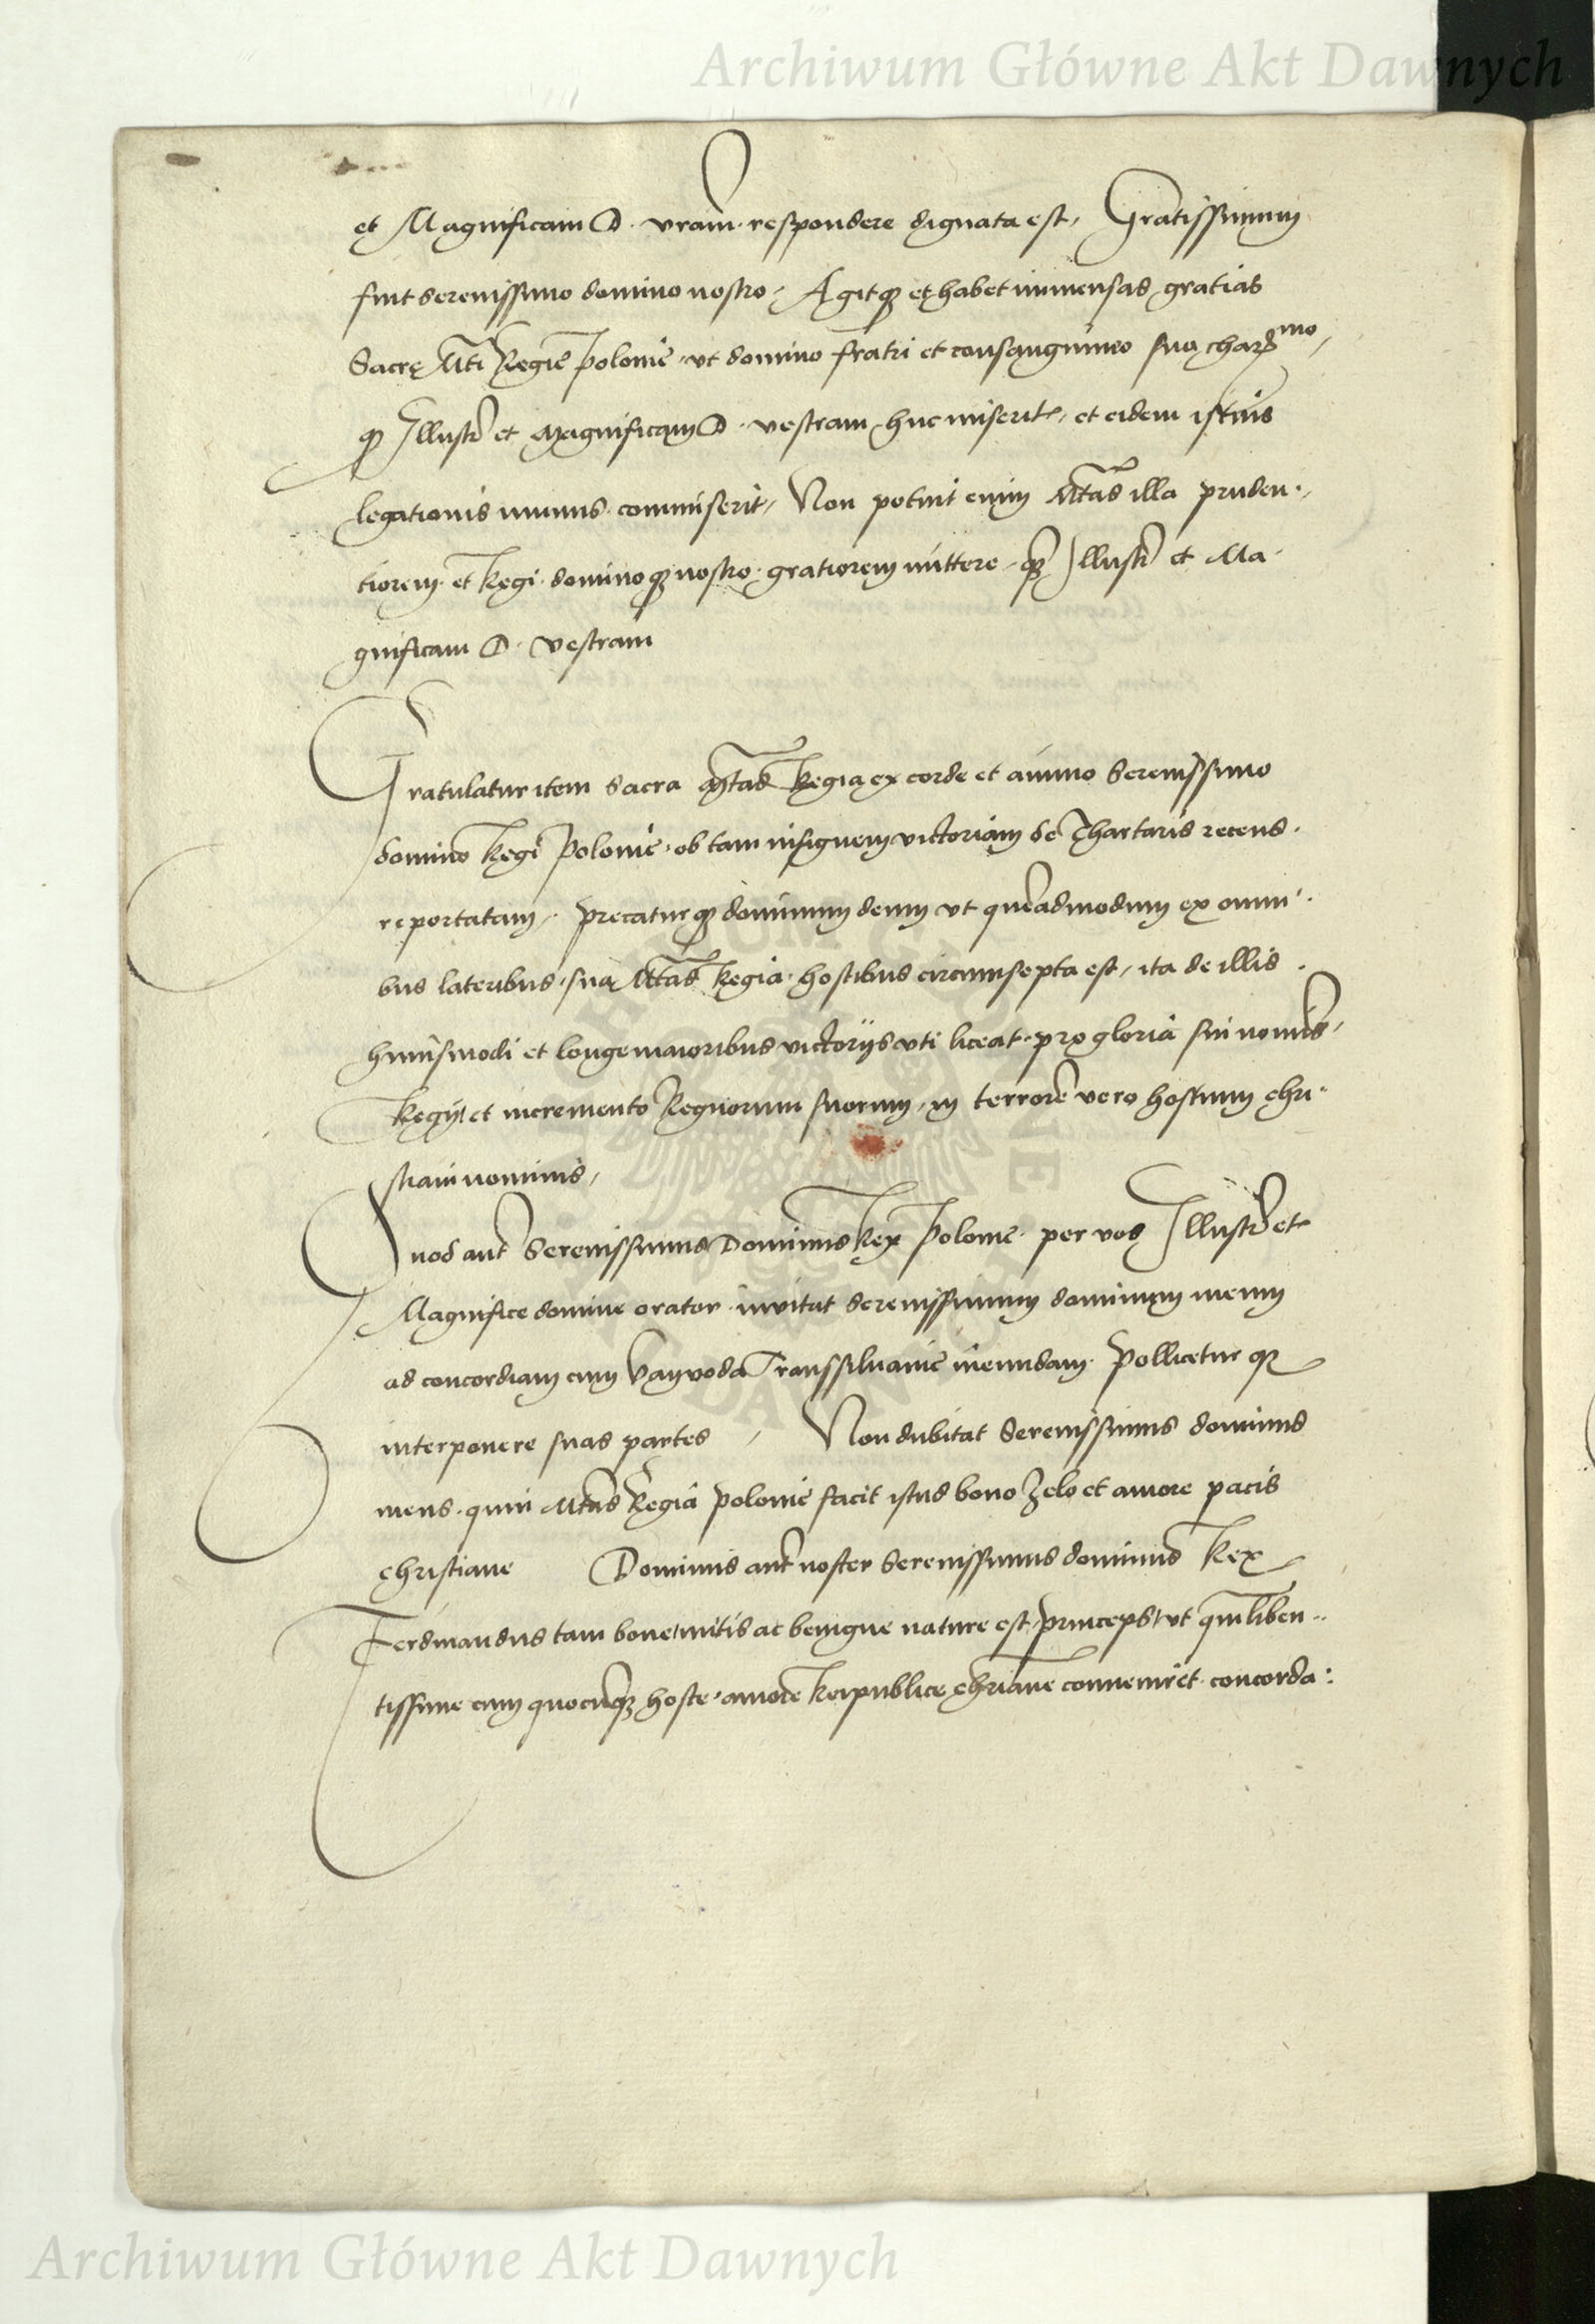 Archiwum Główne Akt Dawnych
et Magnificam D. vram respondere dignata est, Gratissimum
fuit serenissimo domino nostro, Agitqȝ et habet immensas gratias
Sacrę Mti Regie Polonie, vt domino fratri et consanguineo suo chariss^mo,
qȝ Illustrē et Magnificam D. vestram huc miserit, et eidem istius
legationis munus commiserit, Non potuit enim Mtas illa pruden-
tiorem et Regi dominoqȝ nostro gratiorem mittere qȝ Illustrē et Ma-
gnificam D. vestram
Gratulatur item Sacra Mtas Regia ex corde et animo Serenissimo
domino Regi Polonie, ob tam insignem victoriam de Thartaris recens
reportatam, precaturqȝ dominum deum vt quēadmodum ex omni-
bus lateribus sua Mtas Regia hostibus circumsepta est, ita de illis
huiusmodi et longe maioribus victorijs vti liceat, pro gloria sui nomīs,
Regij et incremento Regnorum suorum, in terrorē vero hostium chri-
stiani nominis,
Quod aut Serenissimus Dominus Rex Polonie per vos Illustrē et
Magnifice domine orator invitat serenissimum dominum meum
ad concordiam cum Vayvoda Transsilvanie ineundam. Pollicetur qȝ
interponere suas partes, Non dubitat Serenissimus dominus
meus, quin Mtas Regia Polonie facit istud bono zelo et amore pacis
christiane Dominus aut noster Serenissimus dominus Rex
Ferdinandus tam bone mitis ac benigne nature est princeps vt quilibēn-
tissime cum quocūqȝ hoste amore Reipublice chriane conveniret concorda:
Archiwum Główne Akt Dawnych